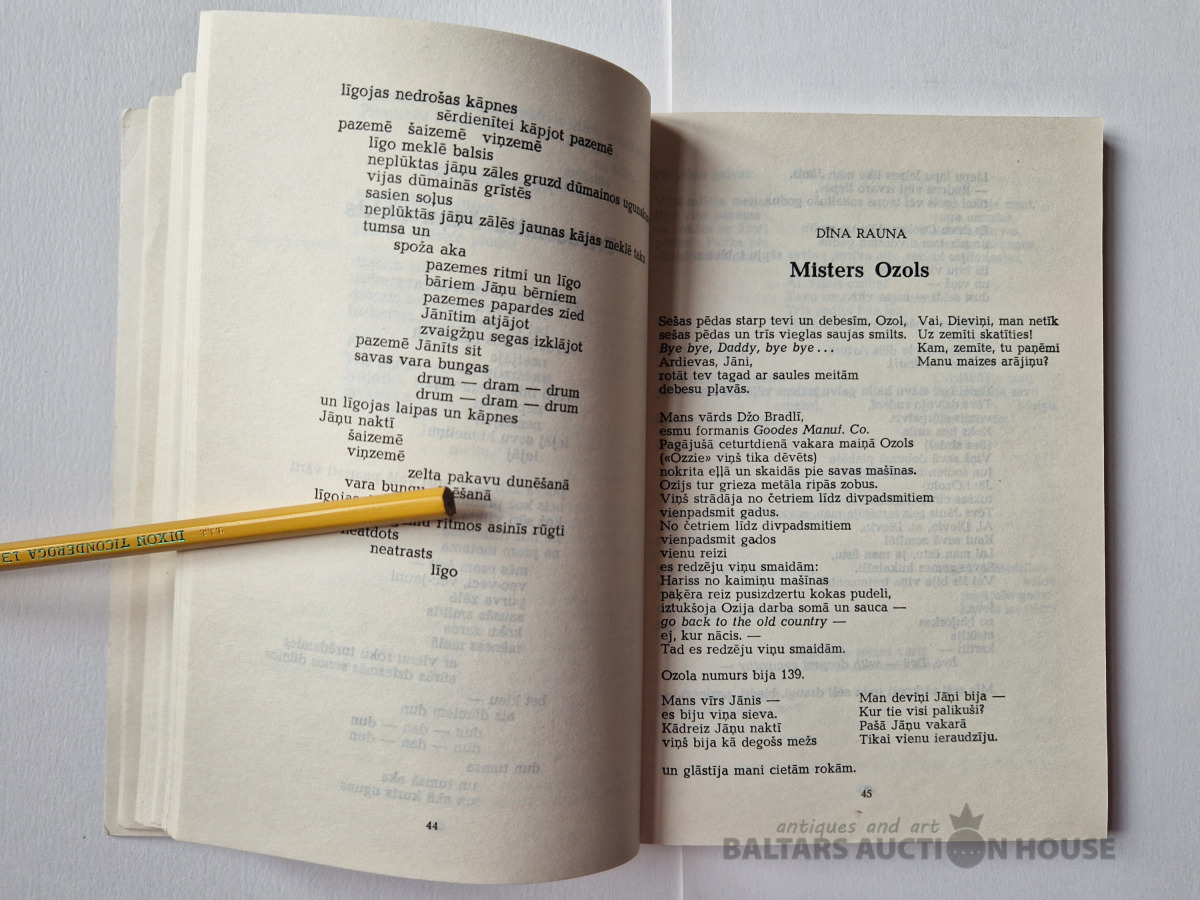 līgojas nedrošas kāpnes
sērdienītei kāpjot pazemē
pazemē šaizemē viņzemē
līgo meklē balsis
neplūktas jāņu zāles gruzd dūmainos
vijas dūmainās grīstēs
sasien soļus
neplūktās jāņu zālēs jaunas kājas meklē taku
tumsa un
spoža aka
pazemes ritmi un līgo
bāriem Jāņu bērniem
pazemes papardes zied
Jānītim atjājot
zvaigžņu segas izklājot
pazemē Jānīts sit
savas vara bungas
drum — dram — drum
drum — dram — drum
un līgojas laipas un kāpnes
Jāņu naktī
šaizemē
viņzemē
zelta pakavu dunēšanā
vara bungu
līgojas
ritmos asinīs rūgti
neatdots
neatrasts
līgo
44
DIXON TICONDEROGA 13
DĪNA RAUNA
Misters Ozols
Sešas pēdas starp tevi un debesīm, Ozol, Vai, Dieviņi, man netīk
sešas pēdas un trīs vieglas saujas smilts. Uz zemīti skatīties!
Bye bye, Daddy, bye bye . . . Kam, zemīte, tu paņēmi
Ardievas, Jāni, Manu maizes arājiņu?
rotāt tev tagad ar saules meitām
debesu pļavās.
Mans vārds Džo Bradlī,
esmu formanis Goodes Manuf. Co.
Pagājušā ceturtdienā vakara maiņā Ozols
(«Ozzie» viņš tika dēvēts)
nokrita eļļā un skaidās pie savas mašīnas.
Ozijs tur grieza metāla ripās zobus.
Viņš strādāja no četriem līdz divpadsmitiem
vienpadsmit gadus.
No četriem līdz divpadsmitiem
vienpadsmit gados
vienu reizi
es redzēju viņu smaidām:
Hariss no kaimiņu mašīnas
paķēra reiz pusizdzertu kokas pudeli,
iztukšoja Ozija darba somā un sauca —
go back to the old country —
ej, kur nācis. —
Tad es redzēju viņu smaidām.
Ozola numurs bija 139.
Mans vīrs Jānis — Man deviņi Jāņi bija —
es biju viņa sieva. Kur tie visi palikuši?
Kādreiz Jāņu naktī Pašā Jāņu vakarā
viņš bija kā degošs mežs Tikai vienu ieraudzīju.
un glāstīja mani cietām rokām.
45
antiques and art
BALTARS AUCTION HOUSE